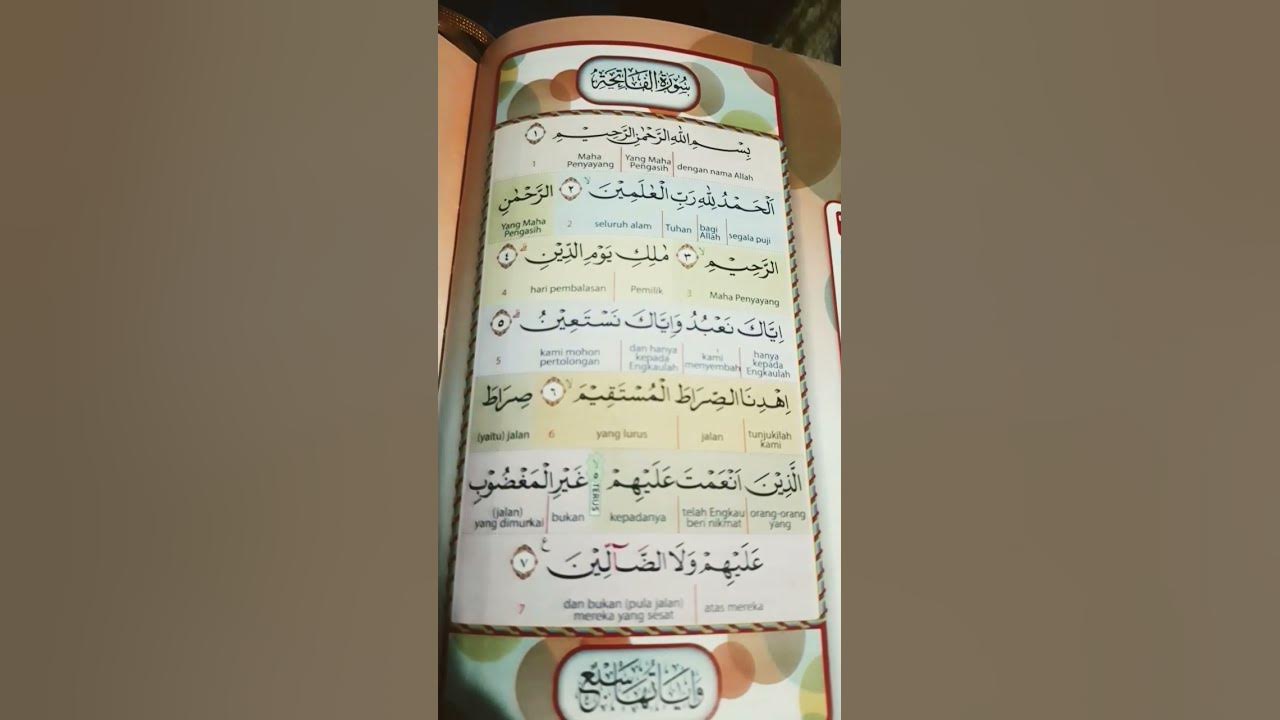 سُوْرَةُ الْفَاتِحَةِ
بِسْمِ اللّٰهِ الرَّحْمٰنِ الرَّحِيْمِ ١
dengan nama Allah | Yang Maha Pengasih | Maha Penyayang | 1
اَلْحَمْدُ لِلّٰهِ رَبِّ الْعٰلَمِيْنَۙ ٢ الرَّحْمٰنِ
segala puji | bagi Allah | Tuhan | seluruh alam | 2 | Yang Maha Pengasih
الرَّحِيْمِۙ ٣ مٰلِكِ يَوْمِ الدِّيْنِۗ ٤
Maha Penyayang | 3 | Pemilik | hari pembalasan | 4
اِيَّاكَ نَعْبُدُ وَاِيَّاكَ نَسْتَعِيْنُۗ ٥
hanya kepada Engkaulah | kami menyembah | dan hanya kepada Engkaulah | kami mohon pertolongan | 5
اِهْدِنَا الصِّرَاطَ الْمُسْتَقِيْمَۙ ٦ صِرَاطَ
tunjukilah kami | jalan | yang lurus | 6 | (yaitu) jalan
الَّذِيْنَ اَنْعَمْتَ عَلَيْهِمْ TERUS غَيْرِ الْمَغْضُوْبِ
orang-orang yang | telah Engkau beri nikmat | kepadanya | bukan | (jalan) yang dimurkai
عَلَيْهِمْ وَلَا الضَّاۤلِّيْنَ ࣖ ٧
atas mereka | dan bukan (pula jalan) mereka yang sesat | 7
وَاٰيَاتُهَا سَبْعٌ